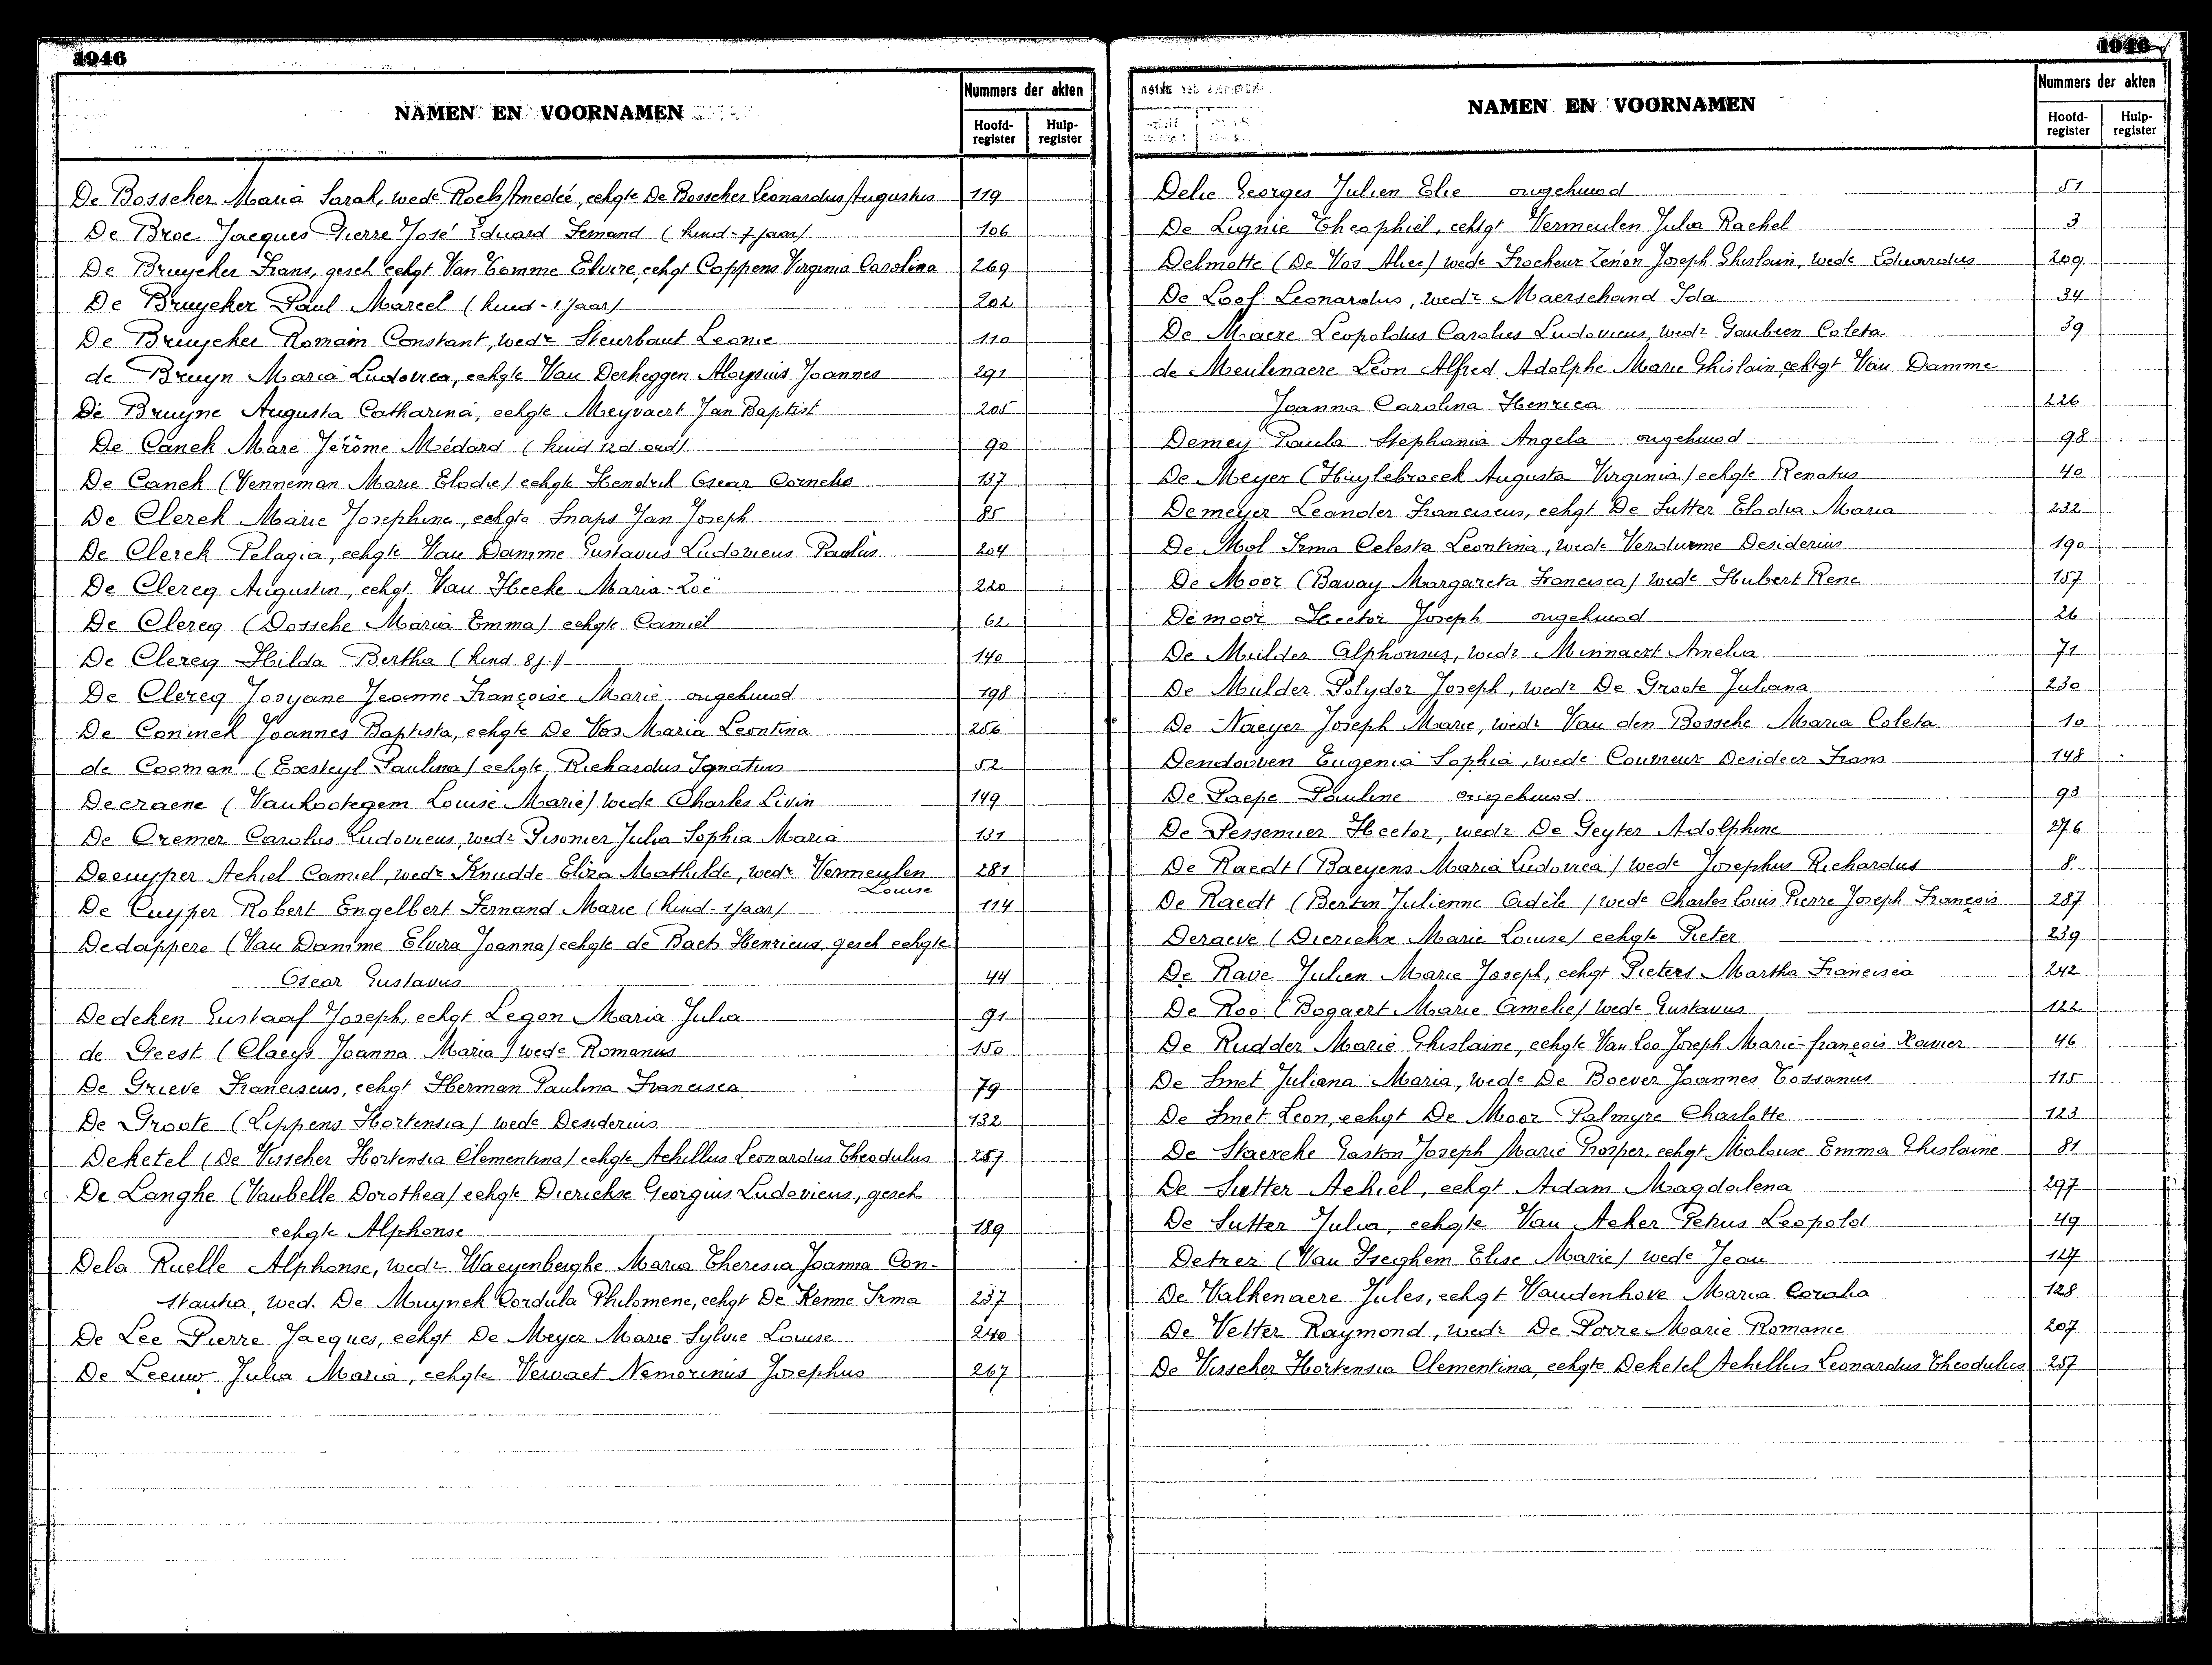 1946
NAMEN EN VOORNAMEN
Nummers der akten
Hoofd-register
Hulp-register
De Bosscher Maria Sarah, wede Roels Amedeé, echgte De Bosscher Leonardus Augustus 119
De Broe Jacques Pierre José Eduard Fernand (kind - 7 jaar) 106
De Bruycker Frans, gesch echgt Van Tomme Elvire, echgt Coppens Virginia Carolina 269
De Bruycker Paul Marcel (kind - 1 jaar) 202
De Bruycker Romain Constant, wedr Steurbaut Leonie 110
de Bruyn Maria Ludovica, echgte Van Derheggen Aloysius Joannes 291
De Bruyne Augusta Catharina, echgte Meyvaert Jan Baptist 205
De Canck Marc Jérôme Médard (kind 12 d. oud) 90
De Canck (Venneman Marie Elodie) echgte Hendrik Oscar Cornelis 137
De Clerck Marie Josephine, echgte Snaps Jan Joseph 85
De Clerck Pelagia, echgte Van Damme Gustavus Ludovicus Paulus 204
De Clercq Augustin, echgt Van Hecke Maria-Zoë 220
De Clercq (Dossche Maria Emma) echgte Camiel 62
De Clercq Hilda Bertha (kind 8 j.) 140
De Clercq Josyane Jeanne Françoise Marie ongehuwd 198
De Coninck Joannes Baptista, echgte De Vos Maria Leontina 256
de Cooman (Exsteyl Paulina) echgte Richardus Ignatius 52
Decraene (Vanhootegem Louise Marie) wede Charles Livin 149
De Cremer Carolus Ludovicus, wedr Pisonier Julia Sophia Maria 131
Decuyper Achiel Camiel, wedr Knudde Eliza Mathilde, wedr Vermeulen Louise 281
De Cuyper Robert Engelbert Fernand Marie (kind - 1 jaar) 114
Dedappere (Van Damme Elvira Joanna) echgte de Baets Henricus, gesch echgte
Oscar Gustavus 44
Dedeken Gustaaf Joseph, echgt Legon Maria Julia 91
de Geest (Claeys Joanna Maria) wede Romanus 150
De Grieve Franciscus, echgt Herman Paulina Francisca 79
De Groote (Lippens Hortensia) wede Desiderius 132
Deketel (De Visscher Hortensia Clementina) echgte Achillus Leonardus Theodulus 257
De Langhe (Vanbelle Dorothea) echgte Dierickse Georgius Ludovicus, gesch
echgte Alphonse 189
Dela Ruelle Alphonse, wedr Waeyenberghe Maria Theresia Joanna Con-
stantia, wed. De Muynck Cordula Philomene, echgt De Kenne Irma 237
De Lee Pierre Jacques, echgt De Meyer Marie Sylvie Louise 240
De Leeuw Julia Maria, echgte Verwaet Nemorinus Josephus 267
1946
NAMEN EN VOORNAMEN
Nummers der akten
Hoofd-register
Hulp-register
Delie Georges Julien Elie ongehuwd 51
De Lignie Theophiel, echtgt Vermeulen Julia Rachel 3
Delmotte (De Vos Alice) wede Frocheur Zénon Joseph Ghislain, wede Eduardus 209
De Loof Leonardus, wedr Maerschand Ida 34
De Maere Leopoldus Carolus Ludovicus, wedr Gaubeen Coleta 39
de Meulenaere Léon Alfred Adolphe Marie Ghislain, echtgt Van Damme
Joanna Carolina Henrica 226
Demey Paula Stephania Angela ongehuwd 98
De Meyer (Huylebroeck Augusta Virginia) echgte Renatus 40
Demeyer Leander Franciscus, echgt De Sutter Elodia Maria 232
De Mol Irma Celesta Leontina, wede Verdurme Desiderius 190
De Moor (Bavay Margareta Francisca) wede Hubert René 157
Demoor Hector Joseph ongehuwd 26
De Muilder Alphonsus, wedr Minnaert Amelia 71
De Mulder Polydor Joseph, wedr De Groote Juliana 230
De Naeyer Joseph Marie, wedr Van den Bossche Maria Coleta 10
Dendooven Eugenia Sophia, wede Couvreur Desideer Frans 148
De Paepe Pauline ongehuwd 93
De Pessemier Hector, wedr De Geyter Adolphine 276
De Raedt (Baeyens Maria Ludovica) wede Josephus Richardus 8
De Raedt (Bertin Julienne Adèle) wede Charles Louis Pierre Joseph François 287
Deraeve (Dierickx Marie Louise) echgte Pieter 239
De Rave Julien Marie Joseph, echgt Pieters Martha Francisca 242
De Roo (Bogaert Marie Amelie) wede Gustavus 122
De Rudder Marie Ghislaine, echgte Van Loo Joseph Marie-françois Xavier 46
De Smet Juliana Maria, wede De Boever Joannes Cossanus 115
De Smet Leon, echgt De Moor Palmyre Charlotte 123
De Staercke Gaston Joseph Marie Prosper, echgt Malouse Emma Ghislaine 81
De Sutter Achiel, echgt Adam Magdalena 297
De Sutter Julia, echgte Van Acker Petrus Leopold 49
Detrez (Van Iseghem Elise Marie) wede Jean 127
De Valkenaere Jules, echgt Vandenhove Maria Coralia 128
De Vetter Raymond, wedr De Porre Marie Romanie 207
De Visscher Hortensia Clementina, echgte Deketel Achillus Leonardus Theodulus 257